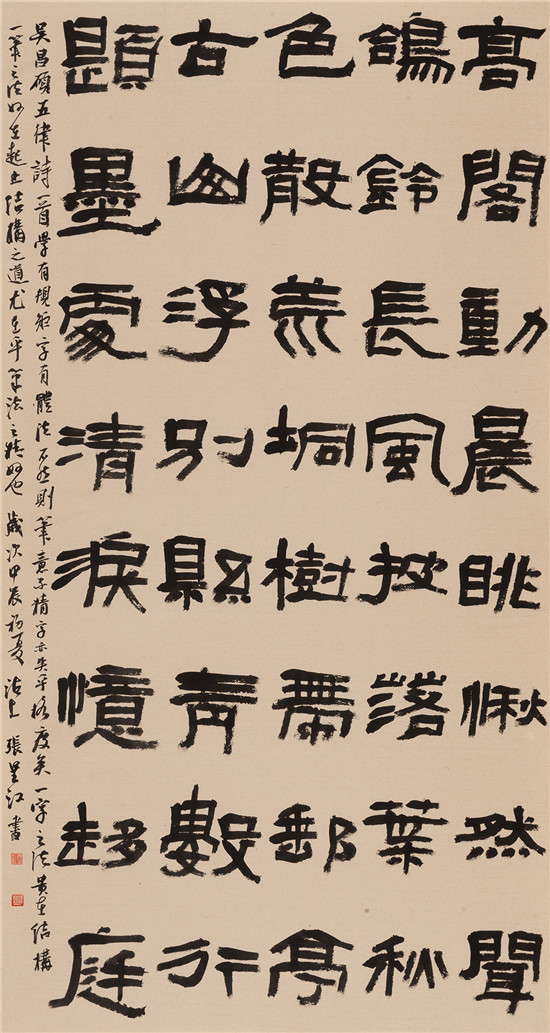 高閣動晨眺愀然聞
鴿鈴長風披落葉秋
色散荒坰樹帶郵亭
古山浮别縣青數行
題墨處清淚憶趍庭
吳昌碩五律詩一首學有規矩字有體法不然則筆意不精字亦失乎格度矣一字之法貴在結構
一筆之法妙在起止結構之道尤在乎筆法之精妙也歲次甲辰初夏沽上張江書